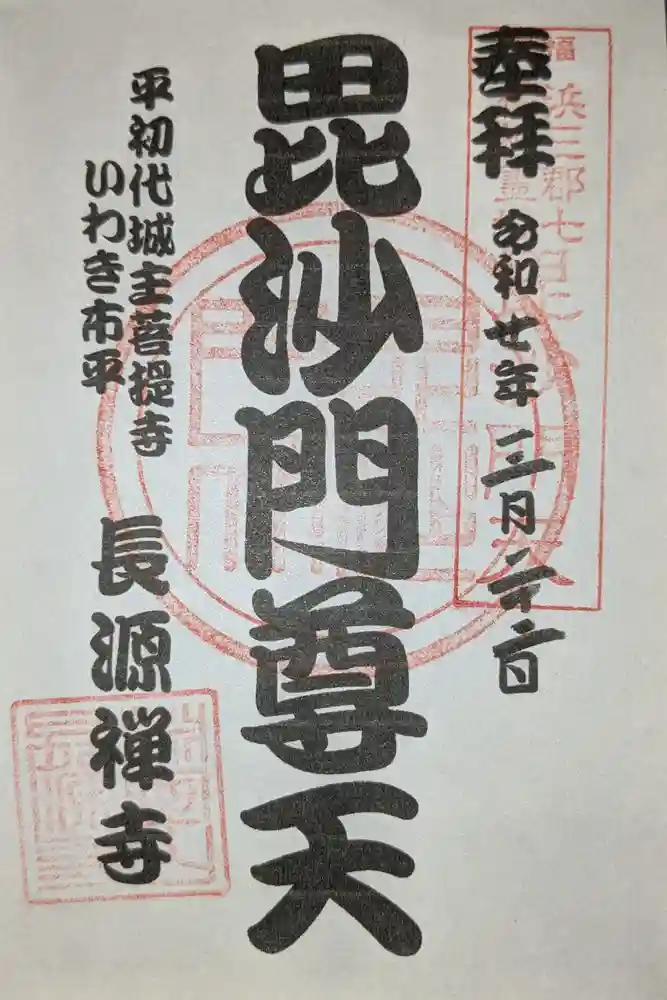 奉拝
令和 年 三月 日
浜三郡七
毘沙門尊天
平初代城主菩提寺
いわき市平
長源禅寺